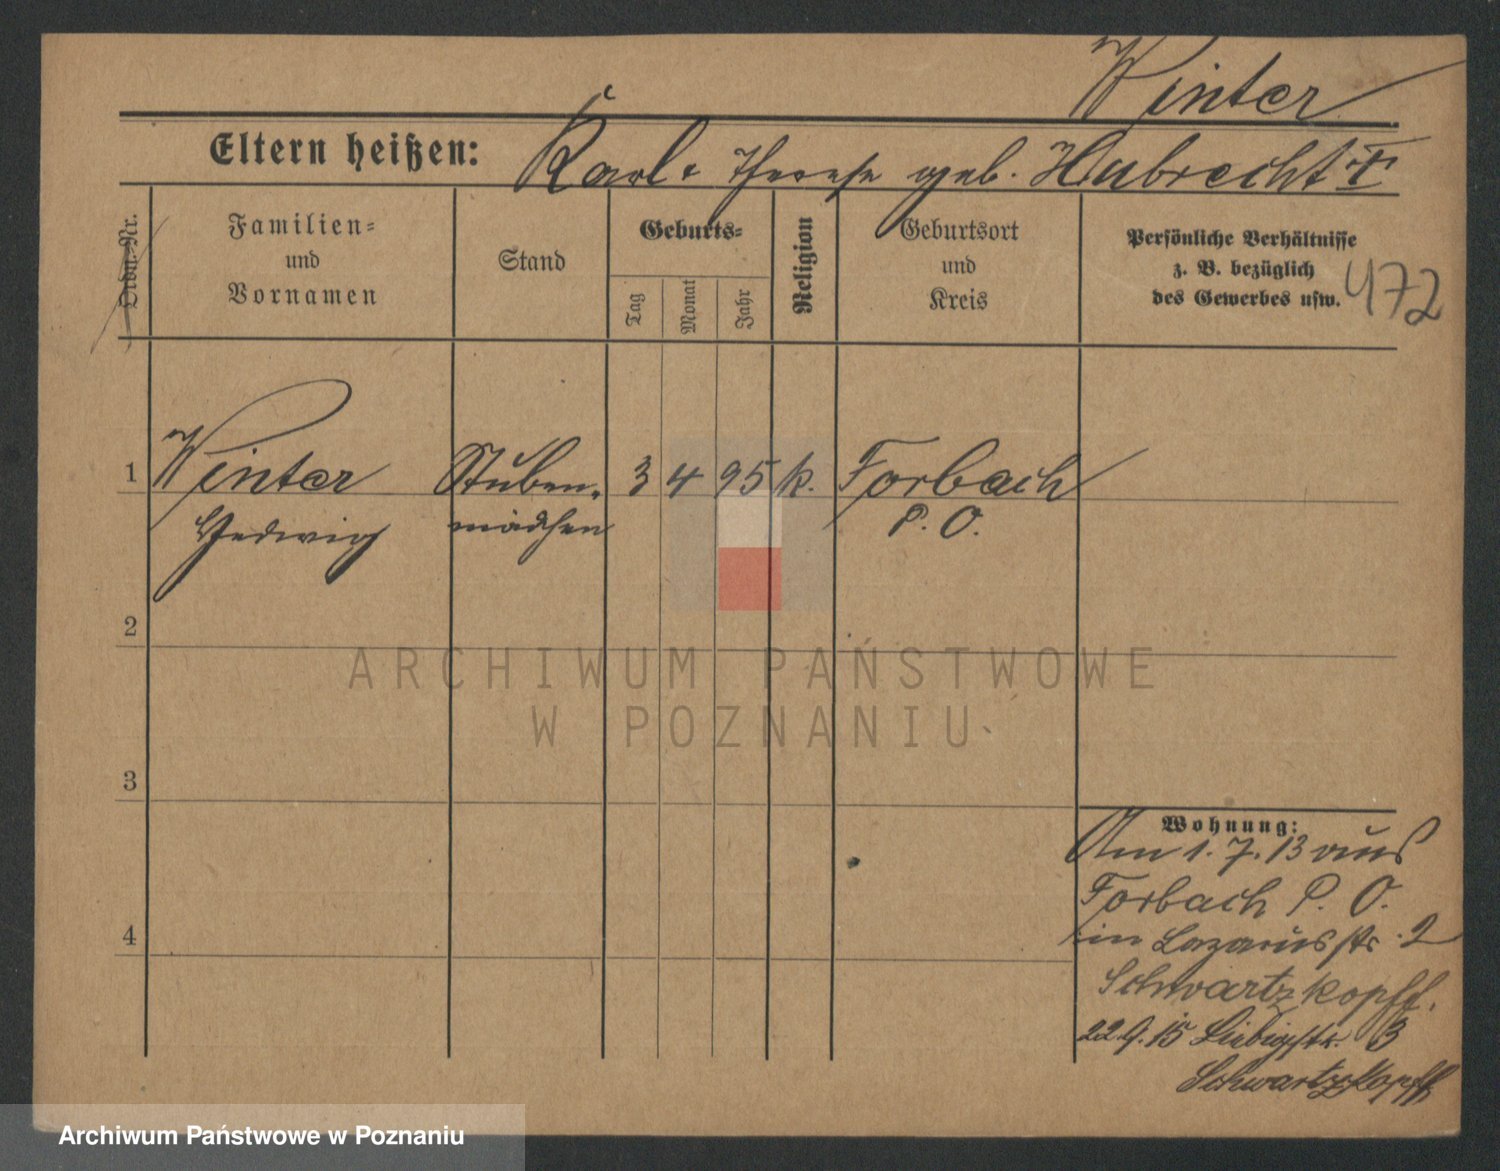 Winter
Eltern heißen: Karl u. Therese geb. Hubrecht
Ordn.-Nr.
Familien-
und
Vornamen
Stand
Geburts-
Tag
Monat
Jahr
Religion
Geburtsort
und
Kreis
Persönliche Verhältnisse
z. B. bezüglich
des Gewerbes usw.
472
1 Winter Stuben- 3 4 95 k. Forbach
Hedwig mädchen P. O.
2
3
4
Wohnung:
Am 1. 7. 13 aus
Forbach P. O.
in Lazarusstr. 2
Schwartzkopff.
22.9.15 Liebigstr. 3
Schwartzkopff
ARCHIWUM PAŃSTWOWE
W POZNANIU
Archiwum Państwowe w Poznaniu